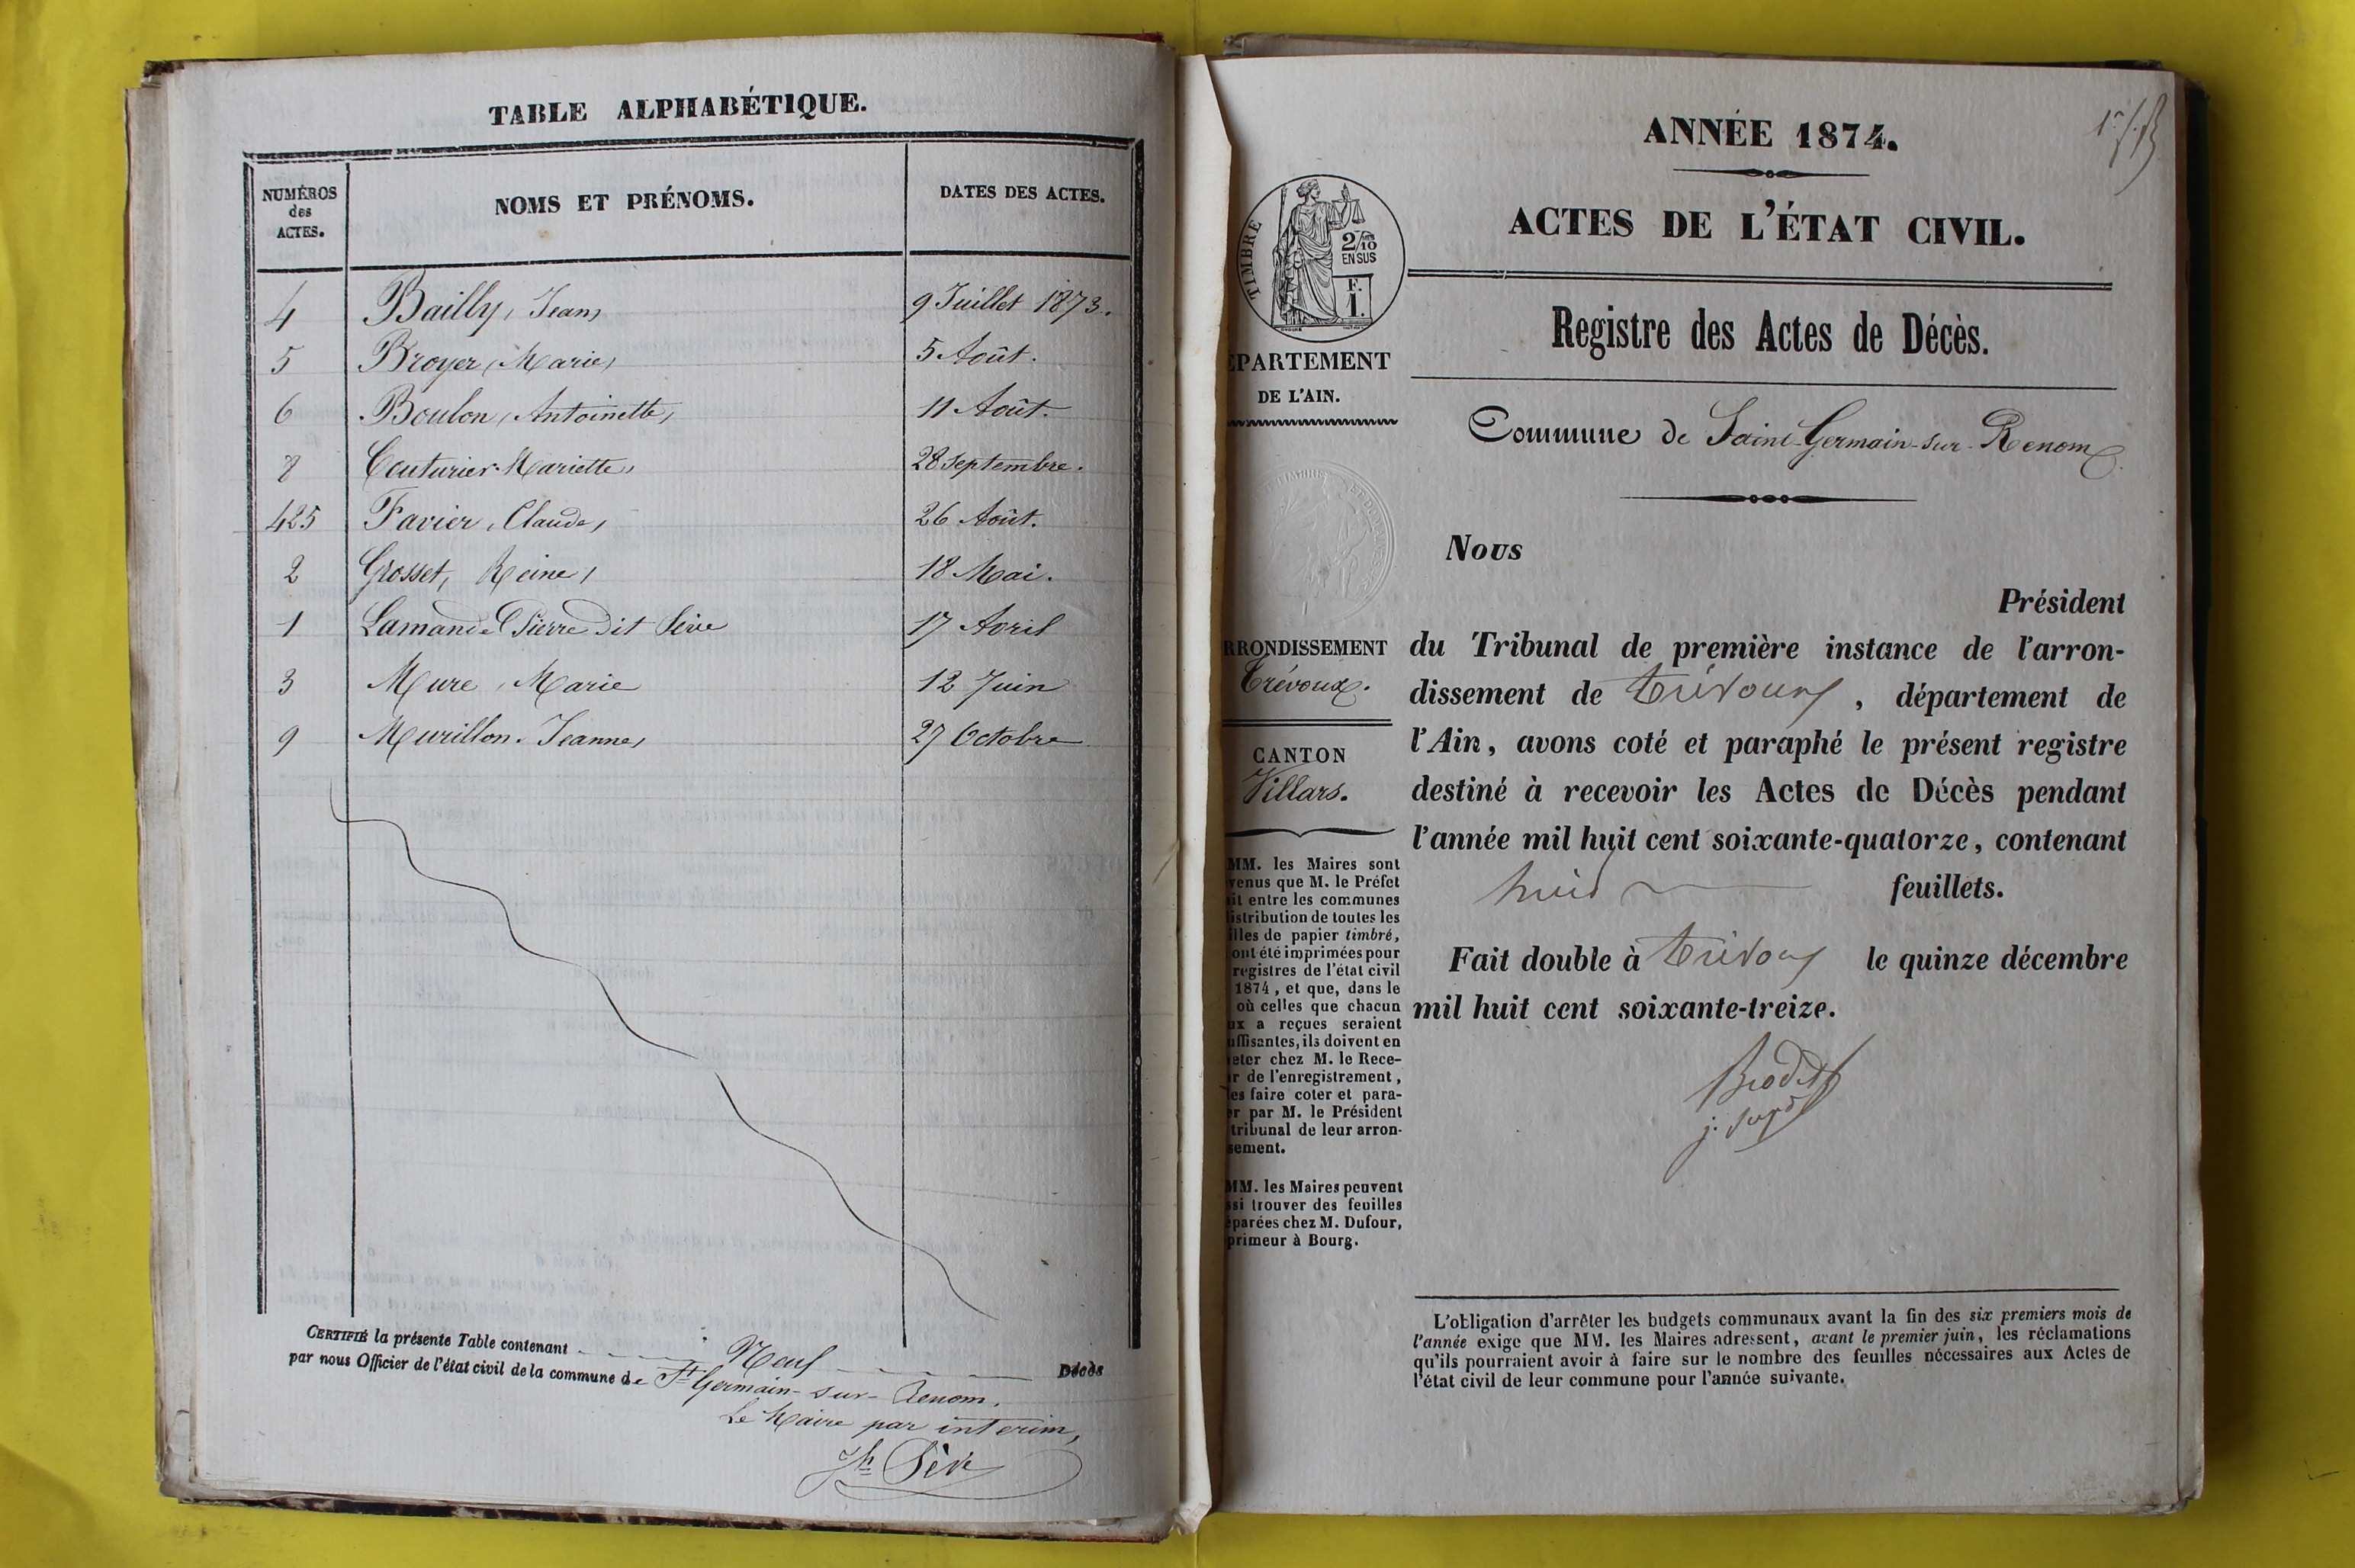 TABLE ALPHABÉTIQUE.
NUMÉROS des ACTES.
NOMS ET PRÉNOMS.
DATES DES ACTES.
4 Bailly, Jean, 9 Juillet 1873.
5 Broyer, Marie, 5 Août.
6 Boulon, Antoinette, 11 Août.
8 Couturier Mariette, 28 Septembre.
425 Favier, Claude, 26 Août.
2 Grosset, Reine, 18 Mai.
1 Lamande Pierre dit Sève 17 Avril
3 Mure, Marie 12 Juin
9 Murillon. Jeanne, 27 Octobre
CERTIFIÉ la présente Table contenant Neuf Décès
par nous Officier de l'état civil de la commune de St Germain-sur-Renom.
Le Maire par interim,
Jh Sève
ANNÉE 1874.
ACTES DE L'ÉTAT CIVIL.
TIMBRE
2/10
EN SUS
F.
1.
Registre des Actes de Décès.
ÉPARTEMENT
DE L'AIN.
Commune de Saint-Germain-sur-Renom
RRONDISSEMENT
Trévoux.
CANTON
Villars.
MM. les Maires sont
venus que M. le Préfet
it entre les communes
istribution de toutes les
illes de papier timbré,
ont été imprimées pour
registres de l'état civil
1874, et que, dans le
où celles que chacun
ux a reçues seraient
uffisantes, ils doivent en
eter chez M. le Rece-
r de l'enregistrement,
es faire coter et para-
er par M. le Président
tribunal de leur arron-
sement.
MM. les Maires peuvent
ssi trouver des feuilles
éparées chez M. Dufour,
primeur à Bourg.
Nous
Président
du Tribunal de première instance de l'arron-
dissement de trévoux, département de
l'Ain, avons coté et paraphé le présent registre
destiné à recevoir les Actes de Décès pendant
l'année mil huit cent soixante-quatorze, contenant
huit feuillets.
Fait double à trévoux le quinze décembre
mil huit cent soixante-treize.
L'obligation d'arrêter les budgets communaux avant la fin des six premiers mois de
l'année exige que MM. les Maires adressent, avant le premier juin, les réclamations
qu'ils pourraient avoir à faire sur le nombre des feuilles nécessaires aux Actes de
l'état civil de leur commune pour l'année suivante.